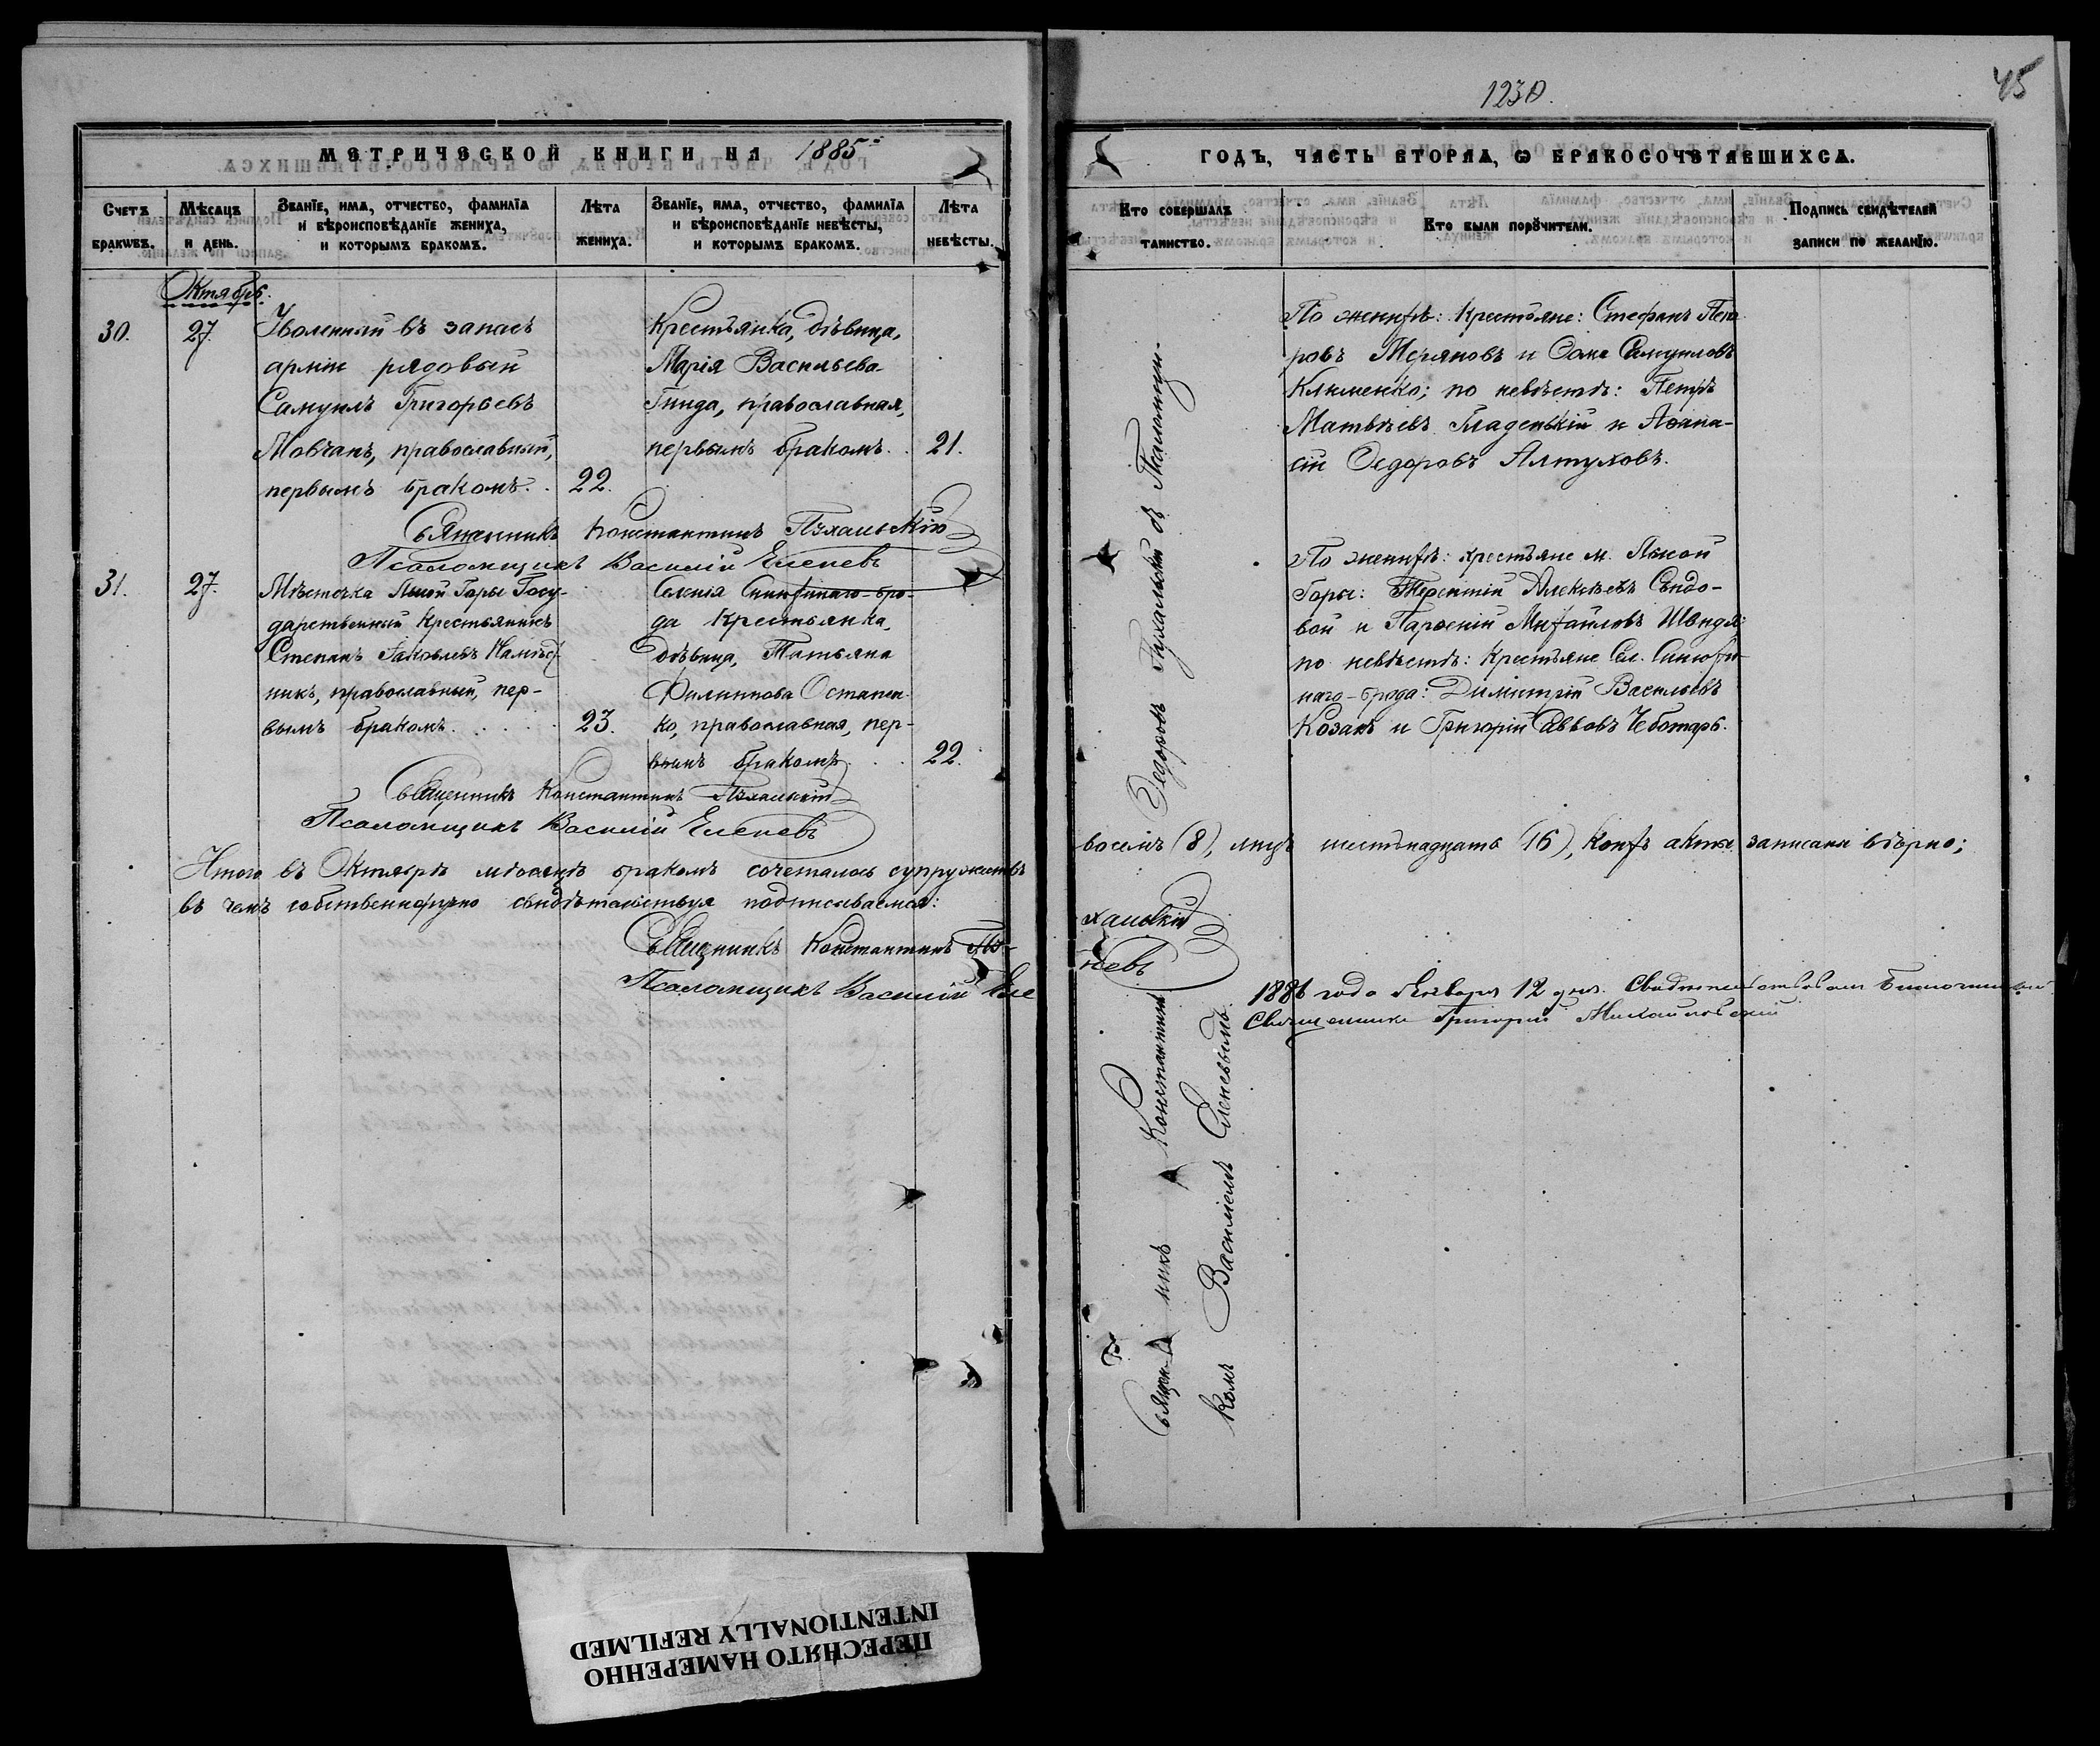 1230.
45
МЕТРИЧЕСКОЙ КНИГИ НА 1885й
ГОДЪ, ЧАСТЬ ВТОРАЯ, Ѡ БРАКОСОЧЕТАВШИХСЯ.
Счетъ браковъ.
Мѣсяцъ и день.
Званіе, имя, отчество, фамилія
и вѣроисповѣданіе жениха,
и которымъ бракомъ.
Лѣта жениха.
Званіе, имя, отчество, фамилія
и вѣроисповѣданіе невѣсты,
и которымъ бракомъ.
Лѣта невѣсты.
Кто совершалъ таинство.
Кто были поручители.
Подпись свидѣтелей
записи по желанію.
Октябрь.
30.
27.
Уволенный въ запасъ
арміи рядовый
Самуилъ Григорьевъ
Мовчанъ, православный,
первымъ бракомъ.
22.
Крестьянка, дѣвица,
Марія Васильева
Гнида, православная,
первымъ бракомъ.
21.
По женихѣ: Крестьяне: Стефанъ Пет-
ровъ Меряновъ и Ѳома Самуиловъ
Клименко; по невѣстѣ: Петръ
Матвѣевъ Гладенькій и Аѳана-
сій Ѳедоровъ Алтуховъ.
Священникъ Константинъ Пухальскій
Псаломщикъ Василій Еленевъ
31.
27.
Мѣстечка Лысой Горы Госу-
дарственный Крестьянинъ
Степанъ Яковлевъ Намѣст-
никъ, православный, пер-
вымъ бракомъ.
23.
Селенія Синюхинаго-бро-
да Крестьянка,
дѣвица, Татьяна
Филиппова Остапен-
ко, православная, пер-
вымъ бракомъ.
22.
По женихѣ: крестьяне м. Лысой
Горы: Терентій Алексѣевъ Сѣдо-
вой и Парѳеній Михайловъ Швидя;
по невѣстѣ: Крестьяне Сел. Синюхи-
наго-брода: Димитрій Васильевъ
Козакъ и Григорій Саввовъ Чеботарь.
Священникъ Константинъ Пухальскій
Псаломщикъ Василій Еленевъ
Священникъ Константинъ Ѳедоровъ Пухальскій съ Псаломщи-
комъ Василіемъ Еленевымъ.
Итого въ Октябрѣ мѣсяцѣ бракомъ сочеталось супружествъ восемь (8), лицъ шестьнадцать (16), коихъ акты записаны вѣрно;
въ чемъ собственноручно свидѣтельствуя подписываемся:
Священникъ Константинъ Пухальскій
Псаломщикъ Василій Еленевъ
1886 года Января 12 дня. Свидѣтельствовалъ Благочинный
Священникъ Григорій Михайловскій
ПЕРЕСНЯТО НАМЕРЕННО
INTENTIONALLY REFILMED